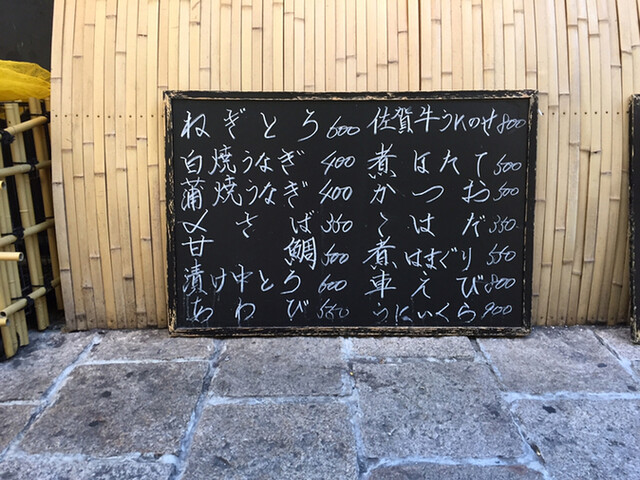 ねぎとろ 600
白焼うなぎ 400
蒲焼うなぎ 400
〆さば 350
甘鯛 500
漬け中とろ 600
あわび 550
佐賀牛うにのせ 800
煮ほたて 500
かつお 500
こはだ 350
煮はまぐり 550
車えび 800
うにいくら 900